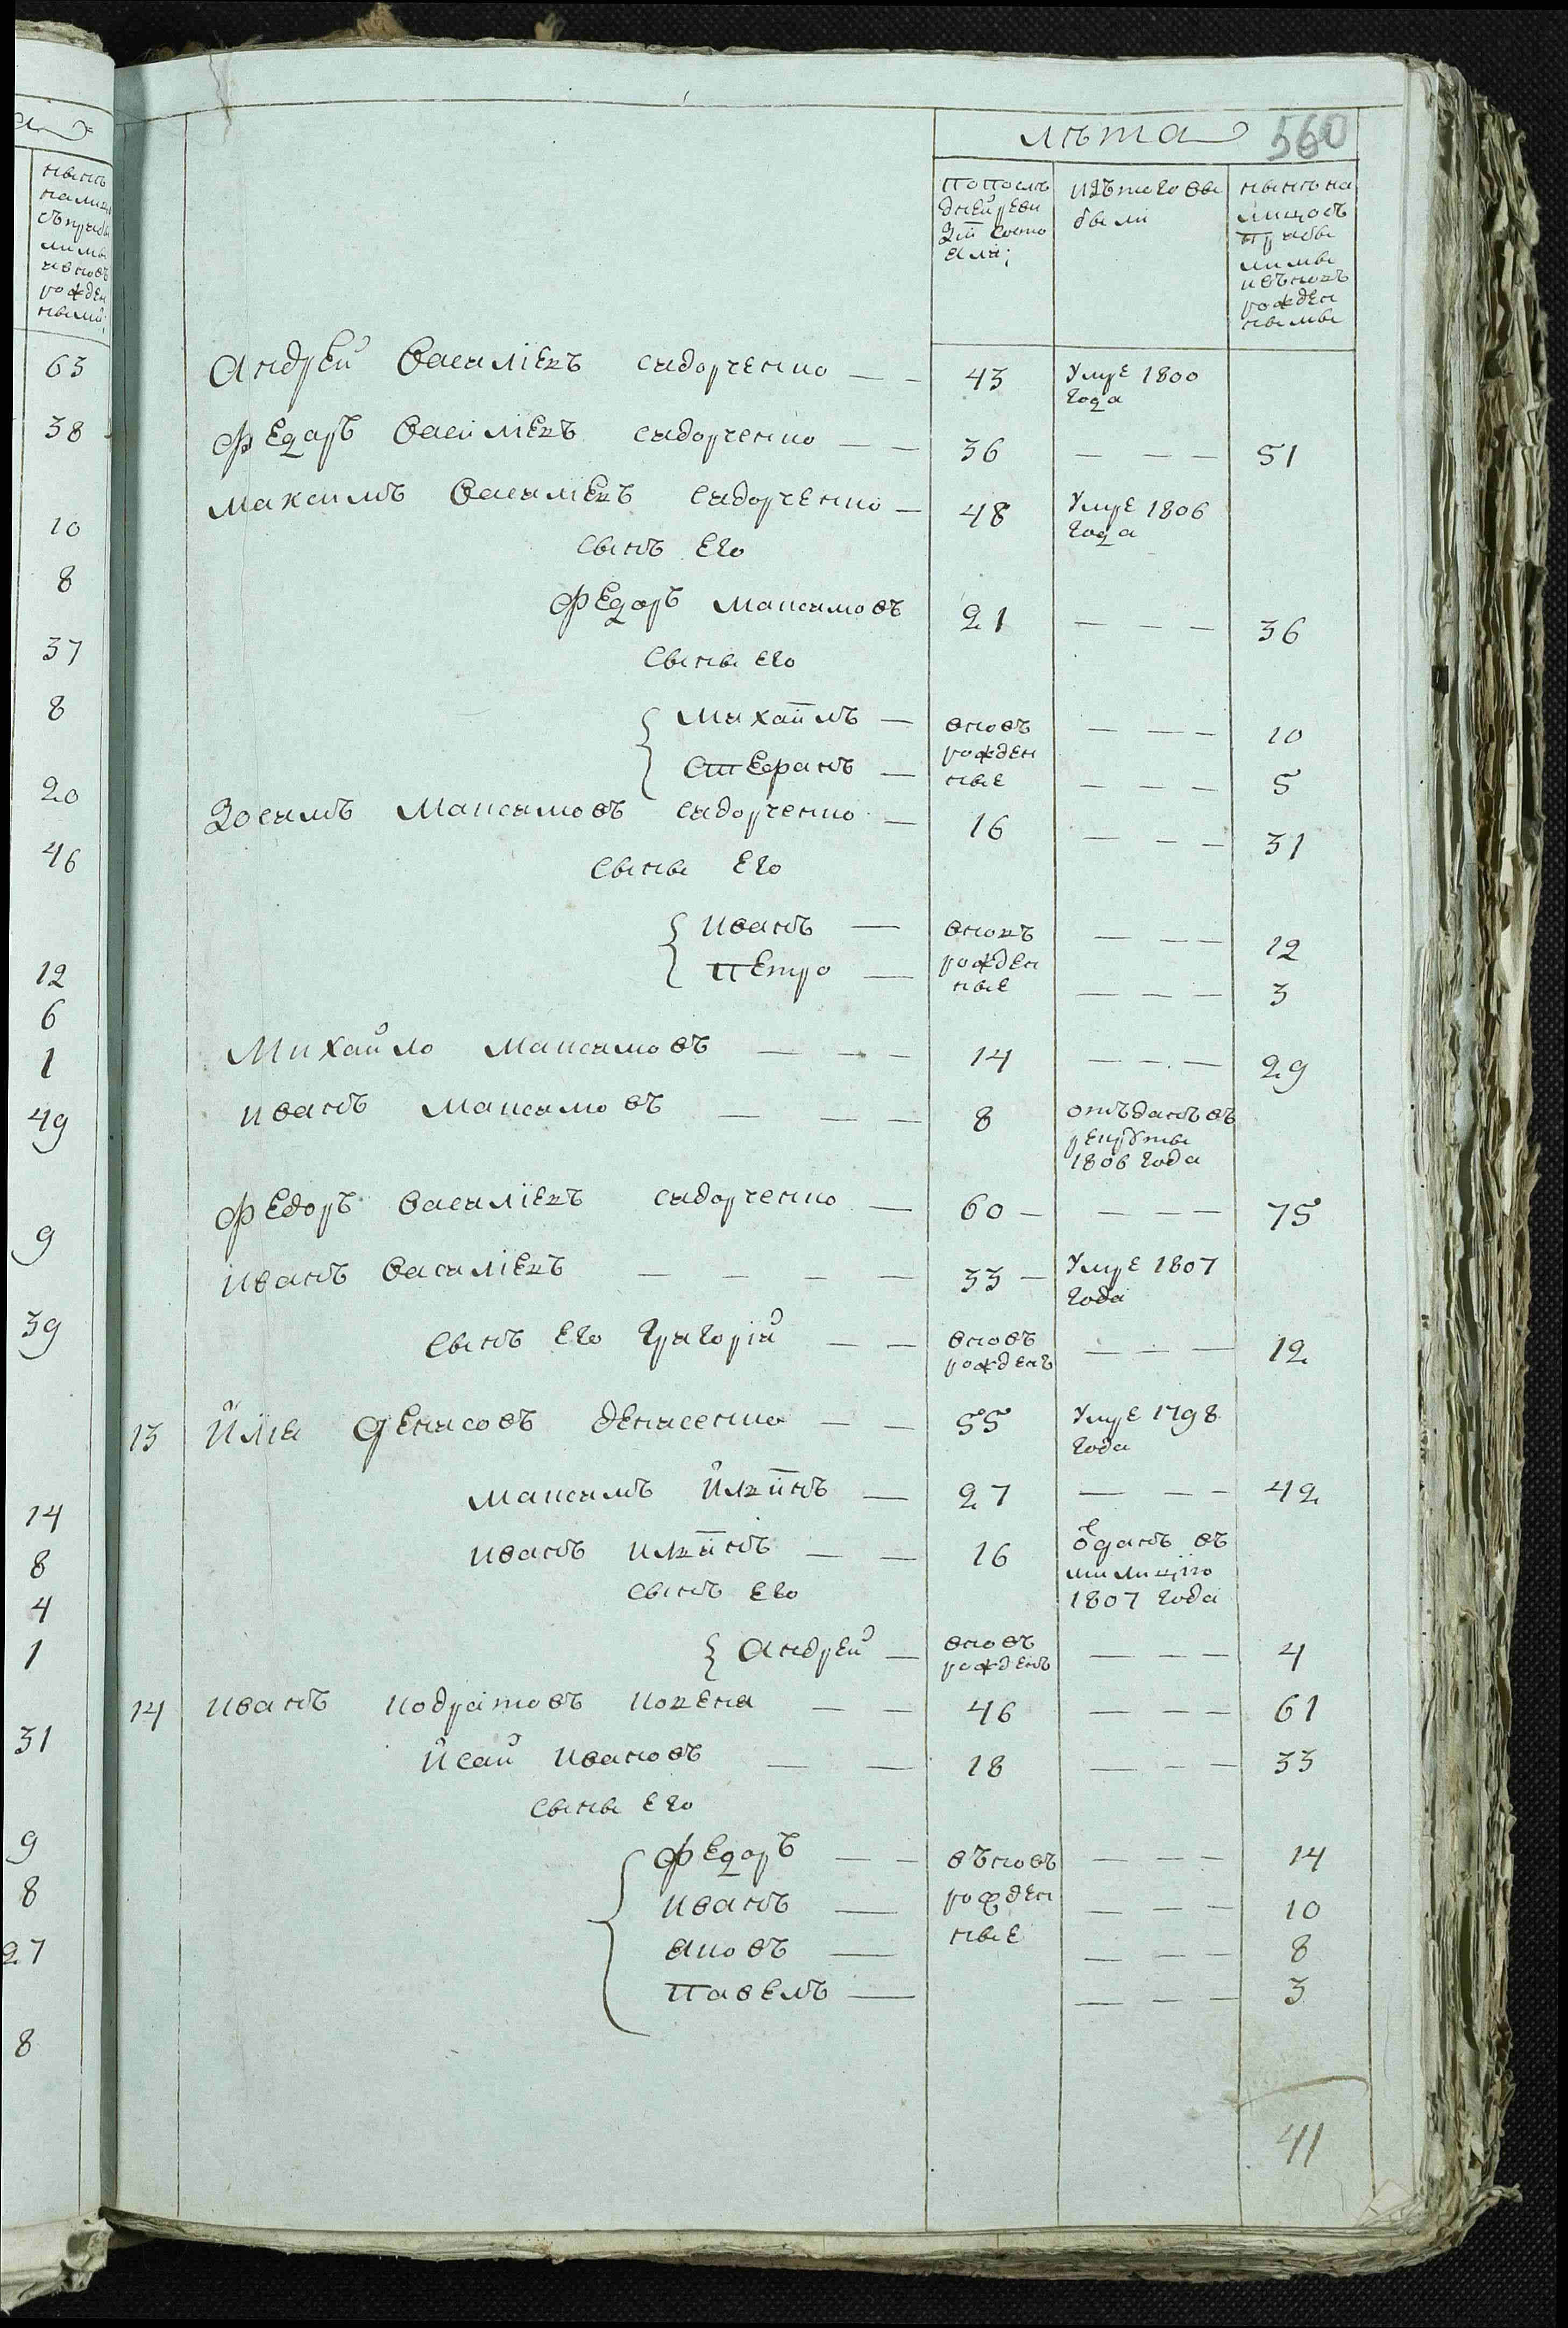 63
38
10
8
37
8
20
46
12
6
1
49
9
39
14
8
4
1
31
9
8
27
8
лѣта 560
по послѣ
дней реви
зіи состо
яли;
изъ того вы
были
нынѣ на
лицо съ
прибы
лымы
и вновь
рожден
нымы
Андрей Васильевъ сидорченко — — 43 Умре 1800
года
Федаръ Васильевъ сидорченко — — 36 — — — 51
Максимъ Васильевъ сидорченко — 48 Умре 1806
года
сынъ Его
Федоръ Максимовъ 21 — — — 36
сыны Его
Михаилъ — вновь — — — 10
рожден
Стефанъ — ные — — — 5
Зосимъ Максимовъ сидорченко — 16 — — — 31
сыны Его
Иванъ — вновь — — — 12
рожден
Петро — ные — — — 3
Михайло Максимовъ — — — 14 — — — 29
Иванъ Максимовъ — — — 8 отъданъ въ
рекруты
1806 года
Федоръ Васильевъ сидорченко — 60 — — — — 75
Иванъ Васильевъ — — — — 33 — Умре 1807
года
сынъ Его Григорій — — вновь — — — 12
рожденъ
13 Илія Денисовъ денисенко — — 55 Умре 1798
года
Максимъ Ильинъ — 27 — — — 42
Иванъ Ильинъ — — 16 ѿданъ въ
милицію
сынъ Его 1807 года
Андрей — вновь — — — 4
рожденъ
14 Иванъ Кодратовъ — — 46 — — — 61
Исай Ивановъ — — 18 — — — 33
сыны Его
Федоръ — — въновь — — — 14
Иванъ — рожден — — — 10
Яковъ — ные — — — 8
Павелъ — — — — 3
41